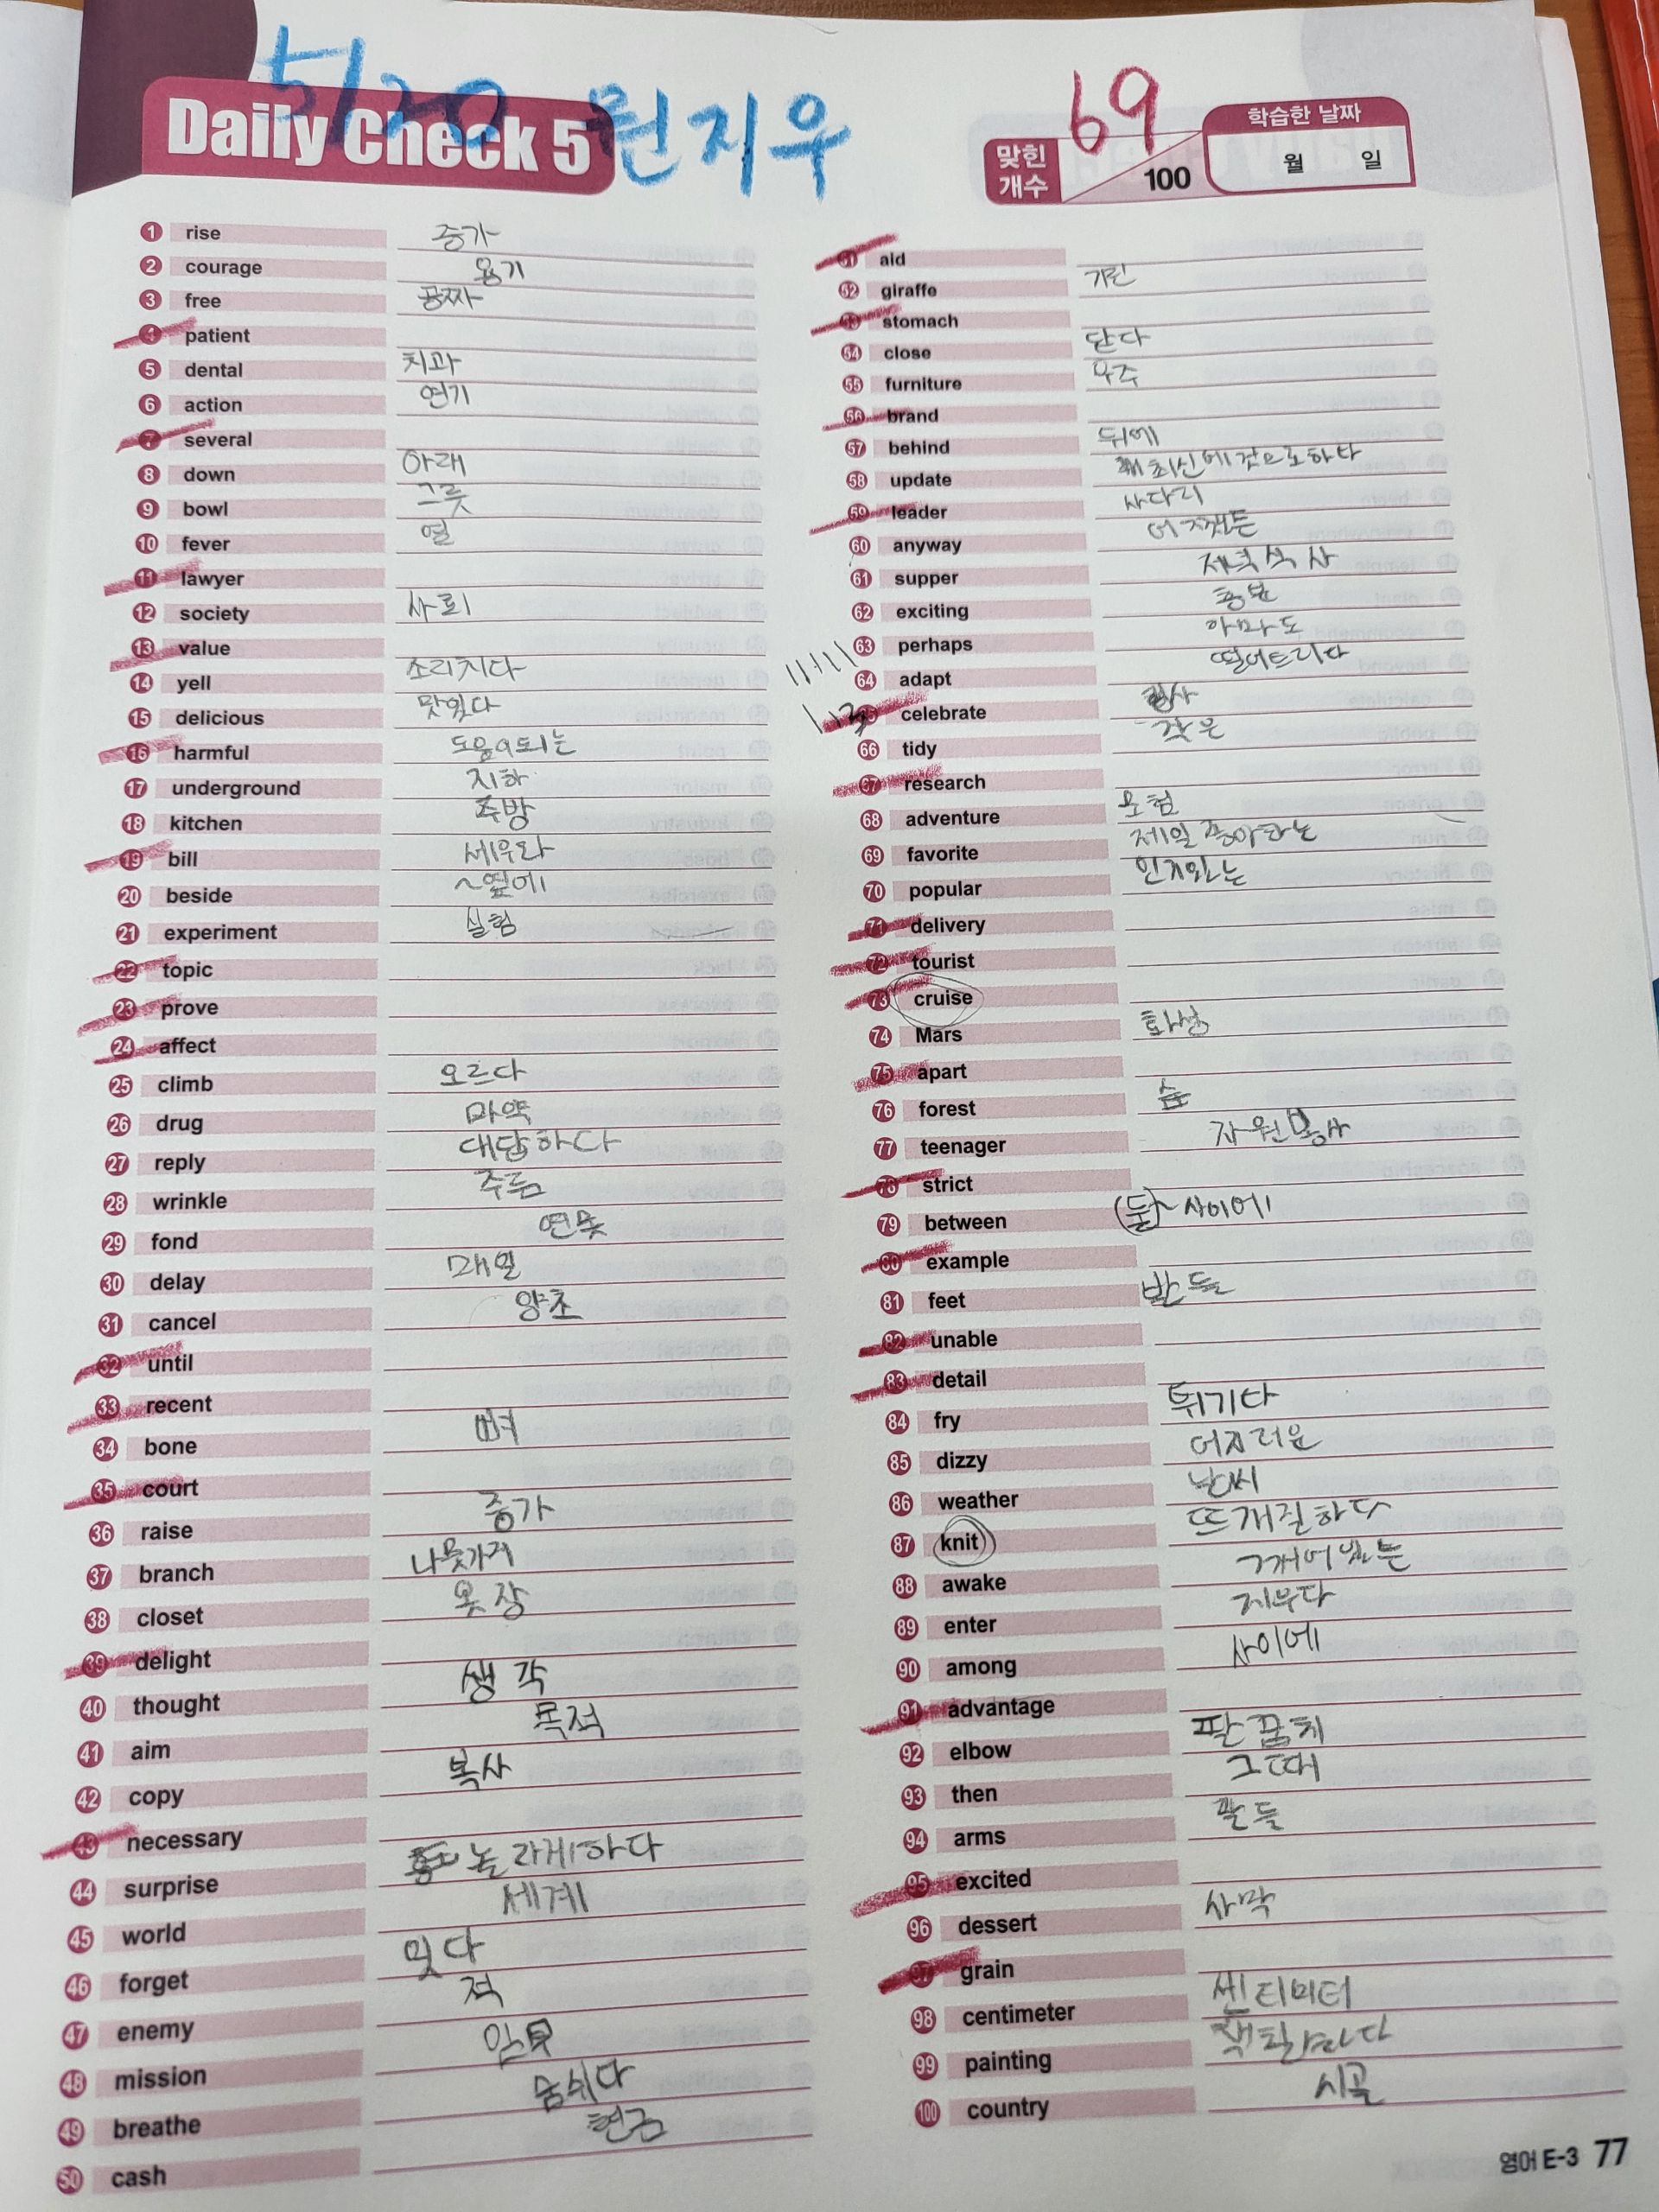 5/20 원지우
Daily Check 5
69
맞힌 개수 100
학습한 날짜
월 일
1 rise 증가
2 courage 용기
3 free 공짜
4 patient
5 dental 치과
6 action 연기
7 several
8 down 아래
9 bowl 그릇
10 fever 열
11 lawyer
12 society 사회
13 value
14 yell 소리치다
15 delicious 맛있다
16 harmful 도움이되는
17 underground 지하
18 kitchen 주방
19 bill 세우다
20 beside ~옆에
21 experiment 실험
22 topic
23 prove
24 affect
25 climb 오르다
26 drug 마약
27 reply 대답하다
28 wrinkle 주름
29 fond 연못
30 delay 매일
31 cancel 양초
32 until
33 recent
34 bone 뼈
35 court
36 raise 증가
37 branch 나뭇가지
38 closet 옷장
39 delight
40 thought 생각
41 aim 목적
42 copy 복사
43 necessary
44 surprise 놀라게하다
45 world 세계
46 forget 잊다
47 enemy 적
48 mission 임무
49 breathe 숨쉬다
50 cash 현금
51 aid
52 giraffe 기린
53 stomach
54 close 닫다
55 furniture 우주
56 brand
57 behind 뒤에
58 update 최신에것으로하다
59 leader 사다리
60 anyway 어쨌든
61 supper 저녁식사
62 exciting 흥분
63 perhaps 아마도
64 adapt 떨어트리다
65 celebrate
66 tidy 작은
67 research
68 adventure 모험
69 favorite 제일 좋아하는
70 popular 인기있는
71 delivery
72 tourist
73 cruise
74 Mars 화성
75 apart
76 forest 숲
77 teenager 자원봉사
78 strict
79 between (둘)~사이에
80 example
81 feet 발들
82 unable
83 detail
84 fry 튀기다
85 dizzy 어지러운
86 weather 날씨
87 knit 뜨개질하다
88 awake 깨어있는
89 enter 지우다
90 among 사이에
91 advantage
92 elbow 팔꿈치
93 then 그때
94 arms 팔들
95 excited
96 dessert 사막
97 grain
98 centimeter 센티미터
99 painting 색칠하다
100 country 시골
영어 E-3 77